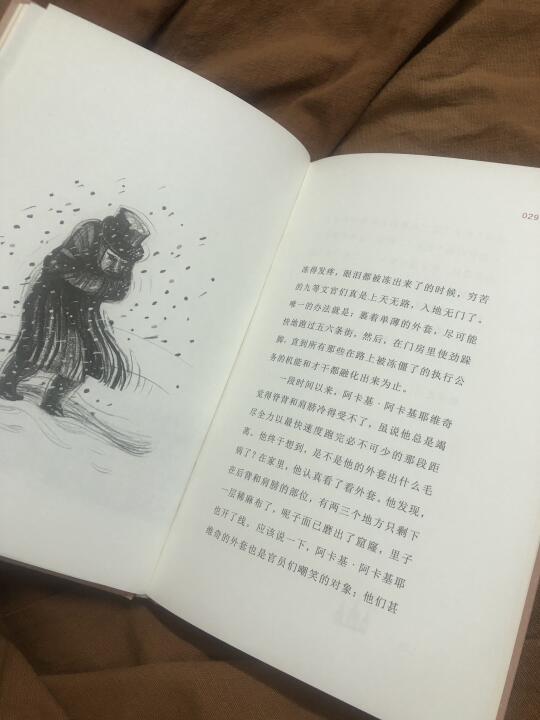 029
冻得发疼，眼泪都被冻出来了的时候，穷苦
的九等文官们真是上天无路，入地无门了。
唯一的办法就是：裹着单薄的外套，尽可能
快地跑过五六条街，然后，在门房里使劲跺
脚，直到所有那些在路上被冻僵了的执行公
务的机能和才干都融化出来为止。
一段时间以来，阿卡基·阿卡基耶维奇
觉得脊背和肩膀冷得受不了，虽说他总是竭
尽全力以最快速度跑完必不可少的那段距
离。他终于想到，是不是他的外套出什么毛
病了？在家里，他认真看了看外套。他发现，
在后背和肩膀的部位，有两三个地方只剩下
一层稀麻布了，呢子而已磨出了窟窿，里子
也开了线。应该说一下，阿卡基·阿卡基耶
维奇的外套也是官员们嘲笑的对象；他们甚